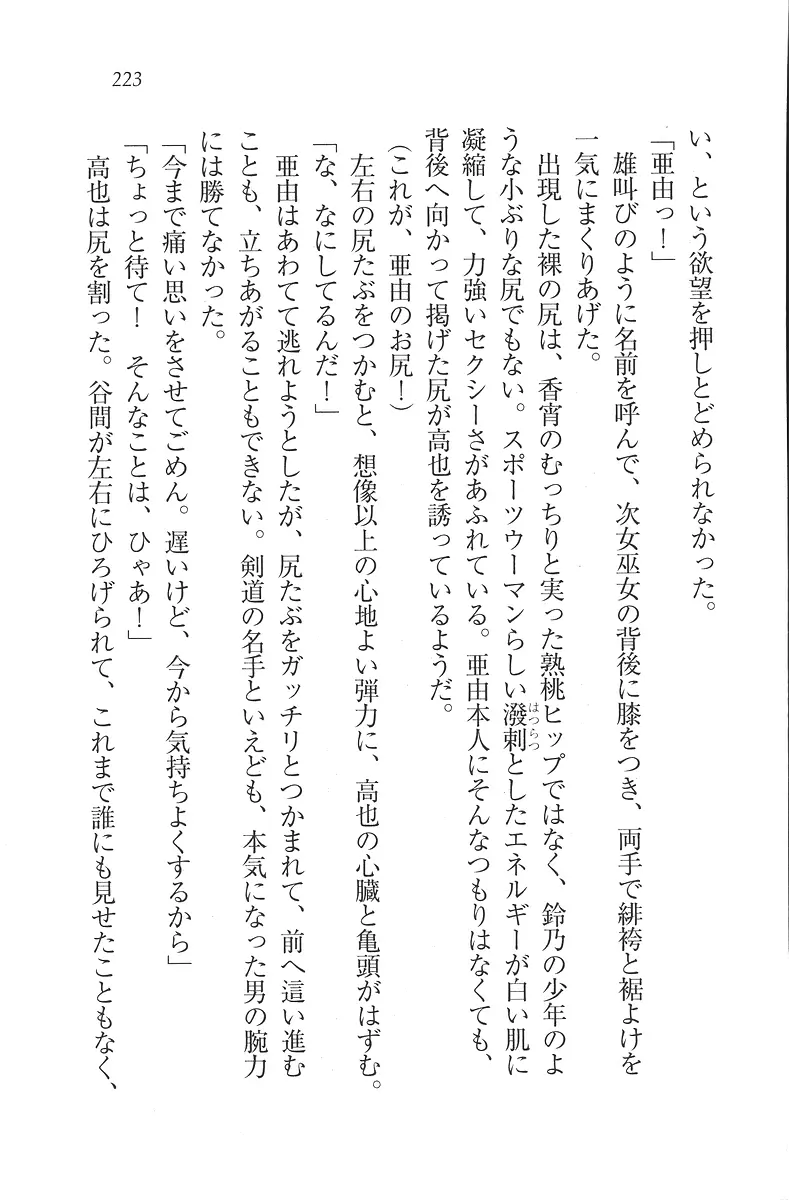 223
い、という欲望を押しとどめられなかった。
「亜由っ！」
雄叫びのように名前を呼んで、次女巫女の背後に膝をつき、両手で緋袴と裾よけを
一気にまくりあげた。
出現した裸の尻は、香宵のむっちりと実った熟桃ヒップではなく、鈴乃の少年のよ
うな小ぶりな尻でもない。スポーツウーマンらしい潑剌としたエネルギーが白い肌に
はつらつ
凝縮して、力強いセクシーさがあふれている。亜由本人にそんなつもりはなくても、
背後へ向かって掲げた尻が高也を誘っているようだ。
（これが、亜由のお尻！）
左右の尻たぶをつかむと、想像以上の心地よい弾力に、高也の心臓と亀頭がはずむ。
「な、なにしてるんだ！」
亜由はあわてて逃れようとしたが、尻たぶをガッチリとつかまれて、前へ這い進む
ことも、立ちあがることもできない。剣道の名手といえども、本気になった男の腕力
には勝てなかった。
「今まで痛い思いをさせてごめん。遅いけど、今から気持ちよくするから」
「ちょっと待て！　そんなことは、ひゃあ！」
高也は尻を割った。谷間が左右にひろげられて、これまで誰にも見せたこともなく、